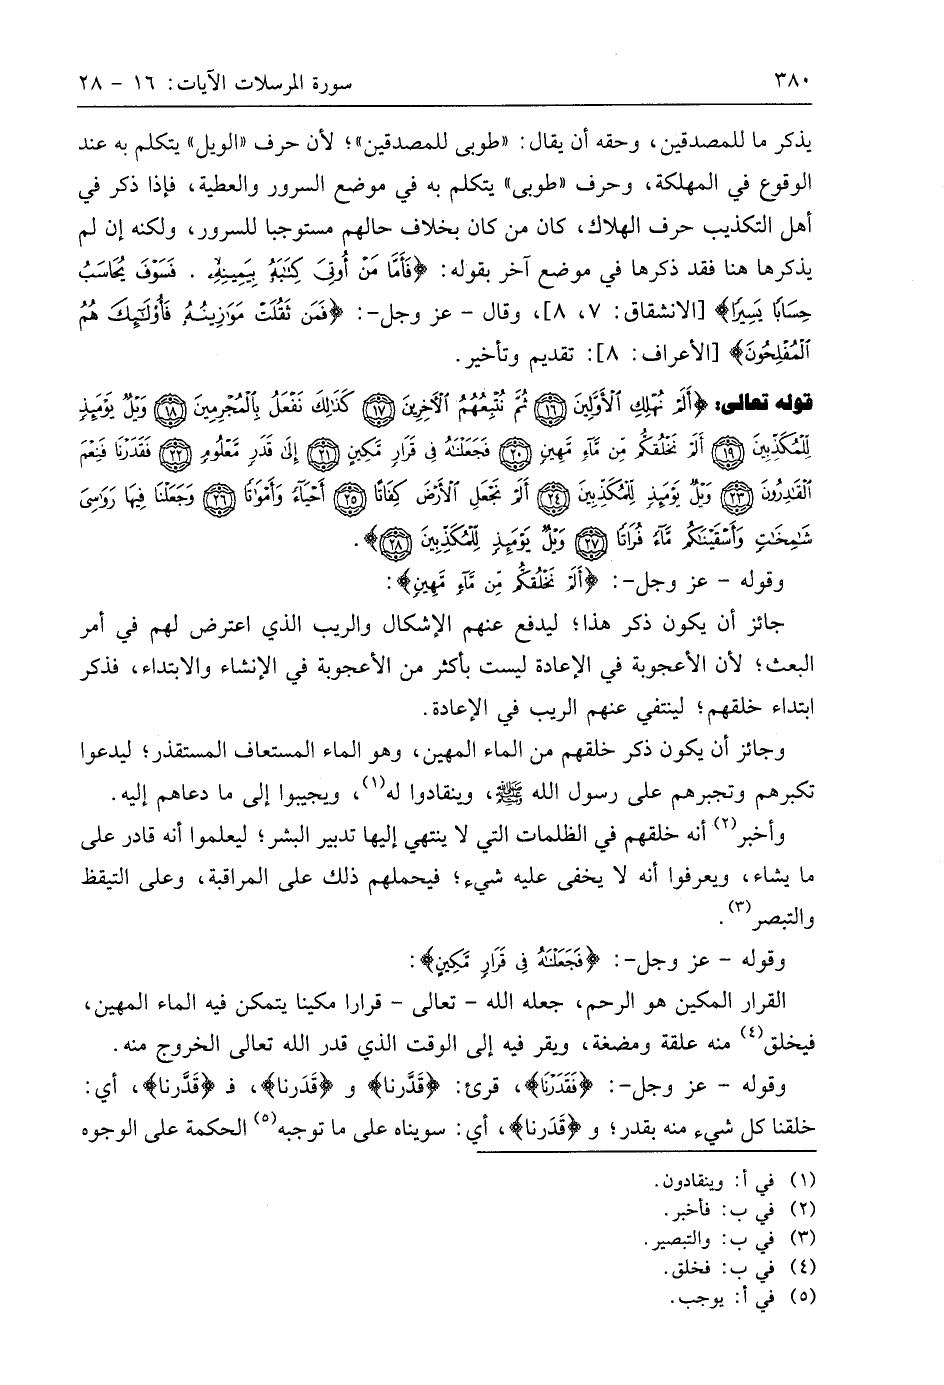 ٣٨٠ سورة المرسلات الآيات: ١٦ - ٢٨
يذكر ما للمصدقين، وحقه أن يقال: «طوبى للمصدقين»؛ لأن حرف «الويل» يتكلم به عند
الوقوع في المهلكة، وحرف «طوبى» يتكلم به في موضع السرور والعطية، فإذا ذكر في
أهل التكذيب حرف الهلاك، كان من كان بخلاف حالهم مستوجبا للسرور، ولكنه إن لم
يذكرها هنا فقد ذكرها في موضع آخر بقوله: ﴿فَأَمَّا مَنْ أُوتِيَ كِتَٰبَهُۥ بِيَمِينِهِۦ . فَسَوْفَ يُحَاسَبُ
حِسَابًا يَسِيرًا﴾ [الانشقاق: ٧، ٨]، وقال - عز وجل-: ﴿فَمَن ثَقُلَتْ مَوَٰزِينُهُۥ فَأُوْلَٰٓئِكَ هُمُ
ٱلْمُفْلِحُونَ﴾ [الأعراف: ٨]: تقديم وتأخير.
قوله تعالى: ﴿أَلَمْ نُهْلِكِ ٱلْأَوَّلِينَ ١٦ ثُمَّ نُتْبِعُهُمُ ٱلْأٓخِرِينَ ١٧ كَذَٰلِكَ نَفْعَلُ بِٱلْمُجْرِمِينَ ١٨ وَيْلٌ يَوْمَئِذٍ
لِّلْمُكَذِّبِينَ ١٩ أَلَمْ نَخْلُقكُّم مِّن مَّآءٍ مَّهِينٍ ٢٠ فَجَعَلْنَٰهُ فِى قَرَارٍ مَّكِينٍ ٢١ إِلَىٰ قَدَرٍ مَّعْلُومٍ ٢٢ فَقَدَرْنَا فَنِعْمَ
ٱلْقَٰدِرُونَ ٢٣ وَيْلٌ يَوْمَئِذٍ لِّلْمُكَذِّبِينَ ٢٤ أَلَمْ نَجْعَلِ ٱلْأَرْضَ كِفَاتًا ٢٥ أَحْيَآءً وَأَمْوَٰتًا ٢٦ وَجَعَلْنَا فِيهَا رَوَٰسِىَ
شَٰمِخَٰتٍ وَأَسْقَيْنَٰكُم مَّآءً فُرَاتًا ٢٧ وَيْلٌ يَوْمَئِذٍ لِّلْمُكَذِّبِينَ ٢٨﴾.
وقوله - عز وجل-: ﴿أَلَمْ نَخْلُقكُّم مِّن مَّآءٍ مَّهِينٍ﴾:
جائز أن يكون ذكر هذا؛ ليدفع عنهم الإشكال والريب الذي اعترض لهم في أمر
البعث؛ لأن الأعجوبة في الإعادة ليست بأكثر من الأعجوبة في الإنشاء والابتداء، فذكر
ابتداء خلقهم؛ لينتفي عنهم الريب في الإعادة.
وجائز أن يكون ذكر خلقهم من الماء المهين، وهو الماء المستعاف المستقذر؛ ليدعوا
تكبرهم وتجبرهم على رسول الله ﷺ، وينقادوا له(١)، ويجيبوا إلى ما دعاهم إليه.
وأخبر(٢) أنه خلقهم في الظلمات التي لا ينتهي إليها تدبير البشر؛ ليعلموا أنه قادر على
ما يشاء، ويعرفوا أنه لا يخفى عليه شيء؛ فيحملهم ذلك على المراقبة، وعلى التيقظ
والتبصر(٣).
وقوله - عز وجل-: ﴿فَجَعَلْنَٰهُ فِى قَرَارٍ مَّكِينٍ﴾:
القرار المكين هو الرحم، جعله الله - تعالى - قرارا مكينا يتمكن فيه الماء المهين،
فيخلق(٤) منه علقة ومضغة، ويقر فيه إلى الوقت الذي قدر الله تعالى الخروج منه.
وقوله - عز وجل-: ﴿فَقَدَرْنَا﴾، قرئ: ﴿قَدَّرنا﴾ و ﴿قَدَرنا﴾، فـ ﴿قَدَّرنا﴾، أي:
خلقنا كل شيء منه بقدر؛ و ﴿قَدَرنا﴾، أي: سويناه على ما توجبه(٥) الحكمة على الوجوه
(١) في أ: وينقادون.
(٢) في ب: فأخبر.
(٣) في ب: والتبصير.
(٤) في ب: فخلق.
(٥) في أ: يوجب.